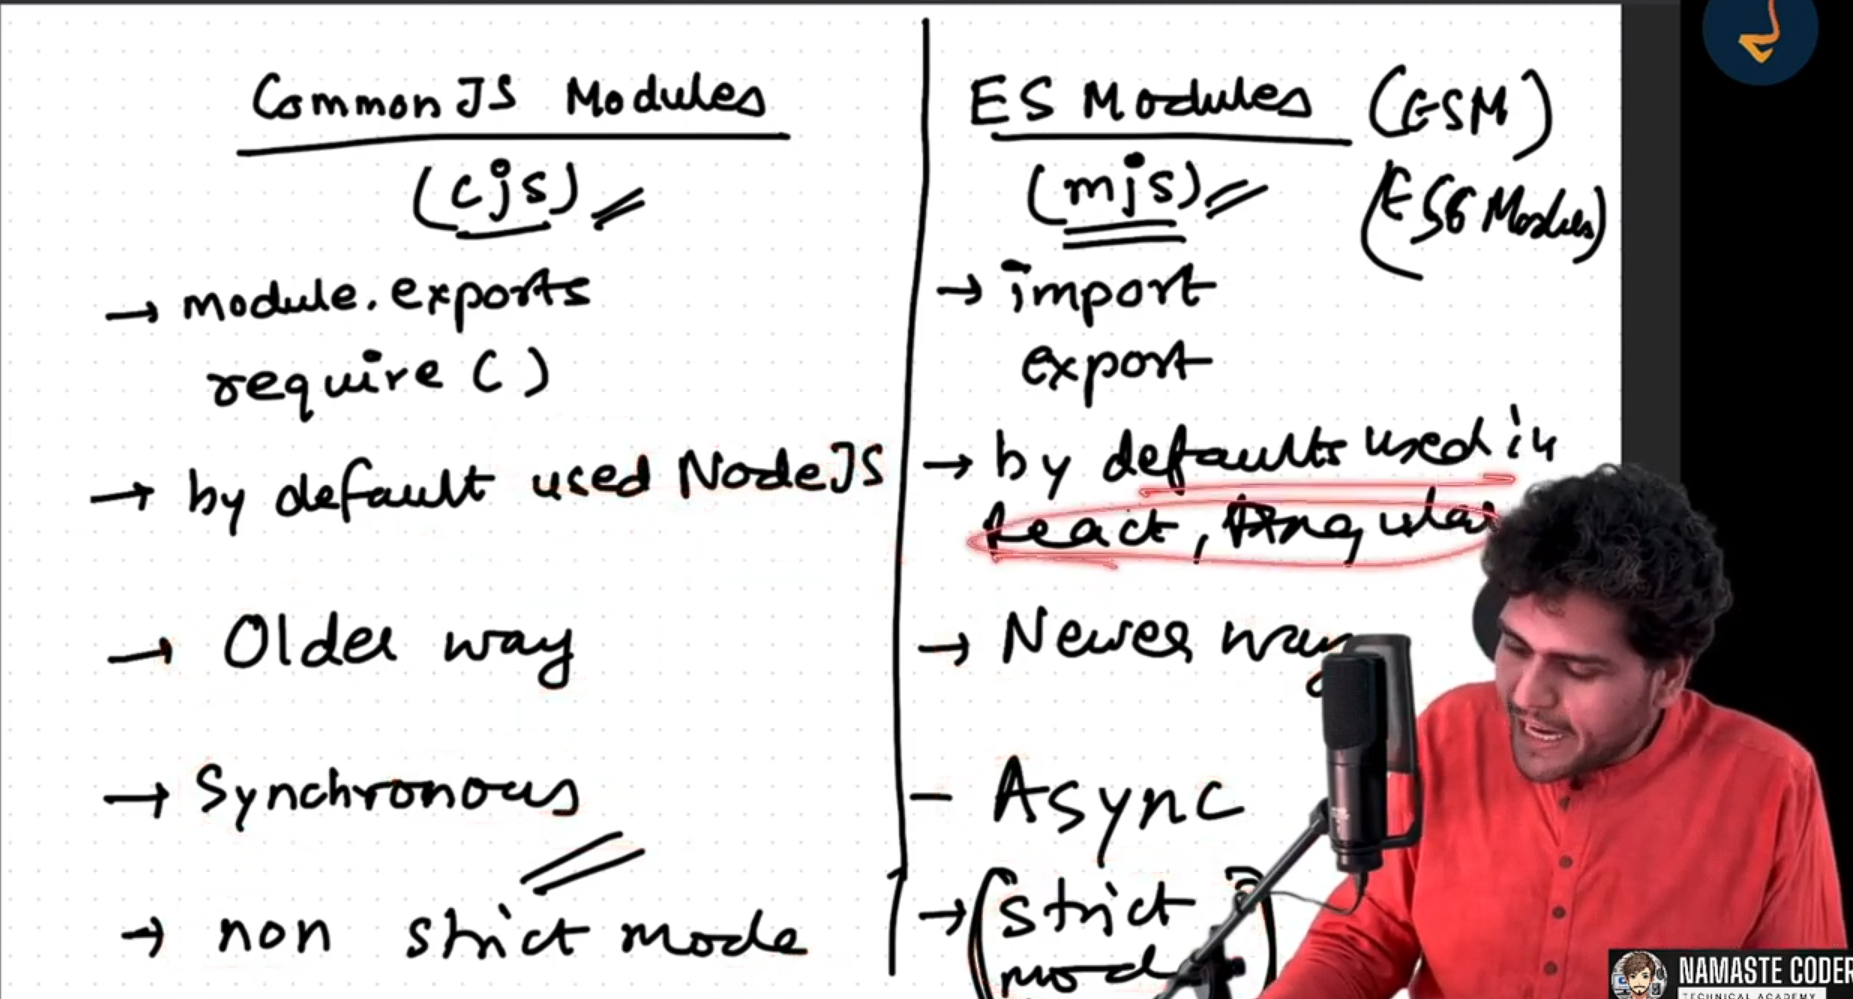 CommonJS Modules
(cjs)
→ module.exports
require ( )
→ by default used NodeJS
→ Older way
→ Synchronous
→ non strict mode
ES Modules (ESM)
(mjs) (ES6 Modules)
→ import
export
→ by defaults used in
React, Angular
→ Newer way
- Async
→ (strict
mod
NAMASTE CODER
TECHNICAL ACADEMY